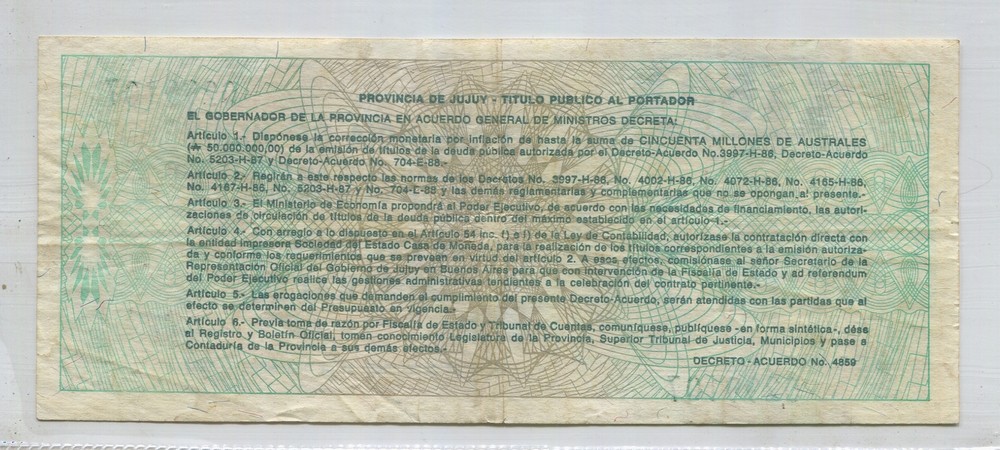 PROVINCIA DE JUJUY - TITULO PUBLICO AL PORTADOR
EL GOBERNADOR DE LA PROVINCIA EN ACUERDO GENERAL DE MINISTROS DECRETA:
Artículo 1.- Dispónese la corrección monetaria por inflación de hasta la suma de CINCUENTA MILLONES DE AUSTRALES
(₳ 50.000.000,00) de la emisión de títulos de la deuda pública autorizada por el Decreto-Acuerdo No.3997-H-86, Decreto-Acuerdo
No. 5203-H-87 y Decreto-Acuerdo No. 704-E-88.-
Artículo 2.- Regirán a este respecto las normas de los Decretos No. 3997-H-86, No. 4002-H-86, No. 4072-H-86, No. 4165-H-86,
No. 4167-H-86, No. 5203-H-87 y No. 704-E-88 y las demás reglamentarias y complementarias que no se opongan al presente.-
Artículo 3.- El Ministerio de Economía propondrá al Poder Ejecutivo, de acuerdo con las necesidades de financiamiento, las autori-
zaciones de circulación de títulos de la deuda pública dentro del máximo establecido en el artículo 1.-
Artículo 4.- Con arreglo a lo dispuesto en el Artículo 54 inc. f) a i) de la Ley de Contabilidad, autorízase la contratación directa con
la entidad impresora Sociedad del Estado Casa de Moneda, para la realización de los títulos correspondientes a la emisión autoriza-
da y conforme los requerimientos que se prevean en virtud del artículo 2. A esos efectos, comisiónase al señor Secretario de la
Representación Oficial del Gobierno de Jujuy en Buenos Aires para que con intervención de la Fiscalía de Estado y ad referendum
del Poder Ejecutivo realice las gestiones administrativas tendientes a la celebración del contrato pertinente.-
Artículo 5.- Las erogaciones que demanden el cumplimiento del presente Decreto-Acuerdo, serán atendidas con las partidas que al
efecto se determinen del Presupuesto en vigencia.
Artículo 6.- Previa toma de razón por Fiscalía de Estado y Tribunal de Cuentas, comuníquese, publíquese - en forma sintética -, dése
al Registro y Boletín Oficial, tomen conocimiento Legislatura de la Provincia, Superior Tribunal de Justicia, Municipios y pase a
Contaduría de la Provincia a sus demás efectos.-
DECRETO - ACUERDO No. 4859